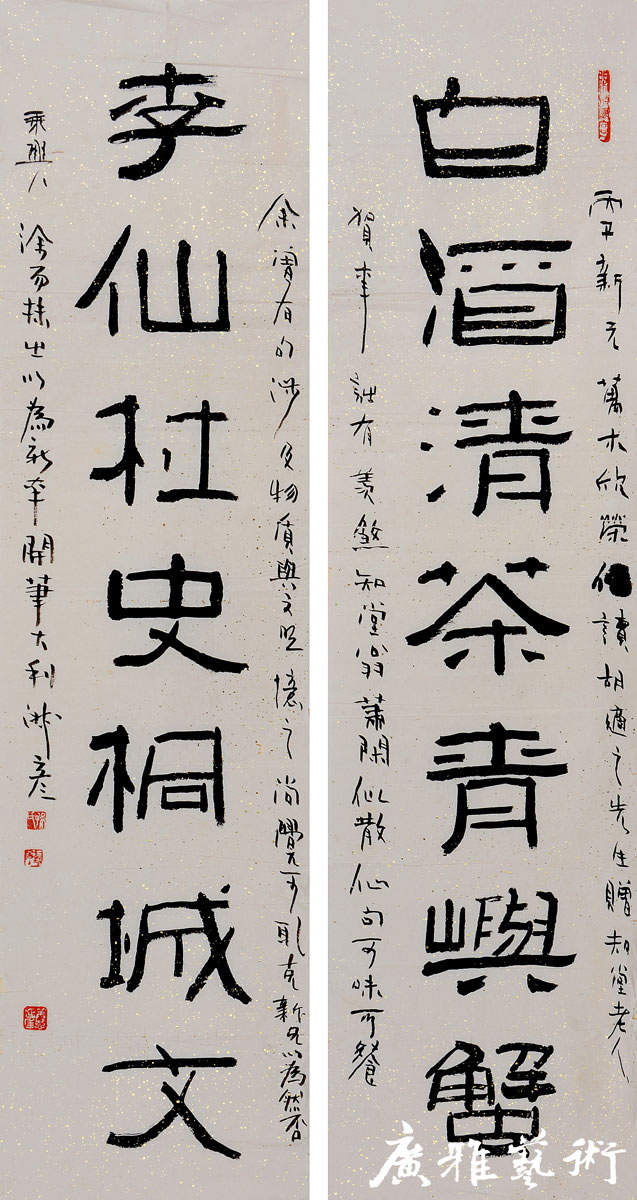 新元萬木欣榮讀胡適之先生贈知堂老人
白酒清茶青嶼蟹
賀年詩有羨煞知堂翁蕭閑似散仙句可味可餐
余嘗有句涉及物質與文明憶之尚覺可耽克新兄以為然否
李仙杜史桐城文
乘興塗而抹出以為新年開筆大利
廣雅藝術